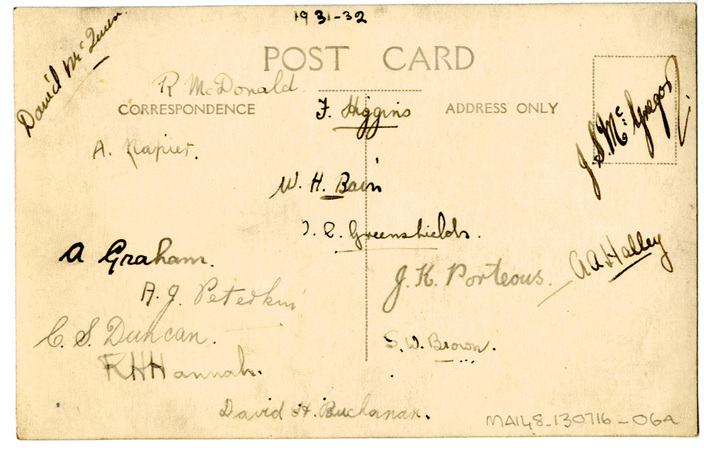 1931-32
David McQueen
POST CARD
R McDonald.
CORRESPONDENCE
F. Higgins
ADDRESS ONLY
J. S. McGregor
A. Napier.
W. H. Bain
Greenshields.
A Graham.
A A Halley
J. K. Porteous.
A. J. Peterkin
C. S. Duncan.
S. W. Brown.
Hannah.
David H. Buchanan.
MA148-130716-06A